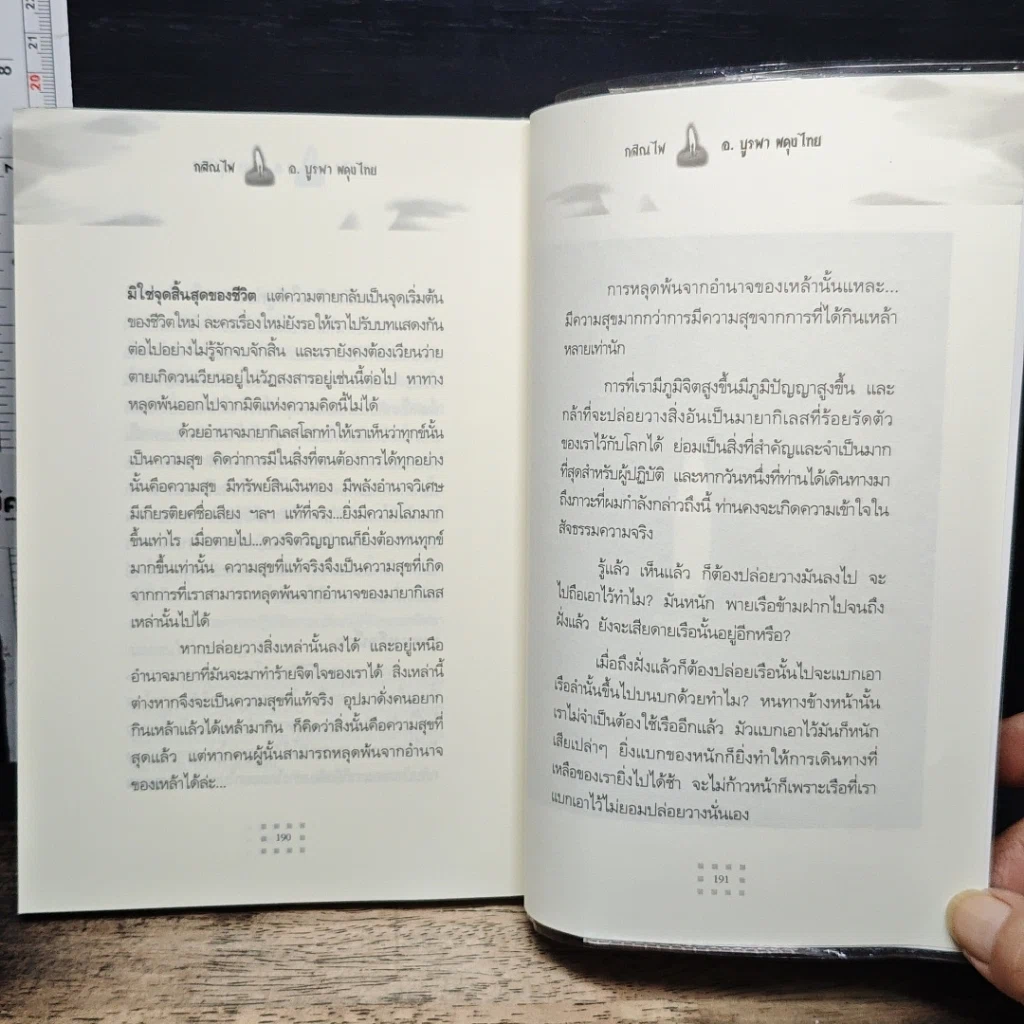 กสิณไฟ อ. บูรพา ผดุงไทย
มิใช่จุดสิ้นสุดของชีวิต แต่ความตายกลับเป็นจุดเริ่มต้น
ของชีวิตใหม่ ละครเรื่องใหม่ยังรอให้เราไปรับบทแสดงกัน
ต่อไปอย่างไม่รู้จักจบจักสิ้น และเรายังคงต้องเวียนว่าย
ตายเกิดวนเวียนอยู่ในวัฏสงสารอยู่เช่นนี้ต่อไป หาทาง
หลุดพ้นออกไปจากมิติแห่งความคิดนี้ไม่ได้
ด้วยอำนาจมายากิเลสโลกทำให้เราเห็นว่าทุกข์นั้น
เป็นความสุข คิดว่าการมีในสิ่งที่ตนต้องการได้ทุกอย่าง
นั้นคือความสุข มีทรัพย์สินเงินทอง มีพลังอำนาจวิเศษ
มีเกียรติยศชื่อเสียง ฯลฯ แท้ที่จริง...ยิ่งมีความโลภมาก
ขึ้นเท่าไร เมื่อตายไป...ดวงจิตวิญญาณก็ยิ่งต้องทนทุกข์
มากขึ้นเท่านั้น ความสุขที่แท้จริงจึงเป็นความสุขที่เกิด
จากการที่เราสามารถหลุดพ้นจากอำนาจของมายากิเลส
เหล่านั้นไปได้
หากปล่อยวางสิ่งเหล่านั้นลงได้ และอยู่เหนือ
อำนาจมายาที่มันจะมาทำร้ายจิตใจของเราได้ สิ่งเหล่านี้
ต่างหากจึงจะเป็นความสุขที่แท้จริง อุปมาดั่งคนอยาก
กินเหล้าแล้วได้เหล้ามากิน ก็คิดว่าสิ่งนั้นคือความสุขที่
สุดแล้ว แต่หากคนผู้นั้นสามารถหลุดพ้นจากอำนาจ
ของเหล้าได้ล่ะ...
190
กสิณไฟ อ. บูรพา ผดุงไทย
การหลุดพ้นจากอำนาจของเหล้านั้นแหละ...
มีความสุขมากกว่าการมีความสุขจากการที่ได้กินเหล้า
หลายเท่านัก
การที่เรามีภูมิจิตสูงขึ้นมีภูมิปัญญาสูงขึ้น และ
กล้าที่จะปล่อยวางสิ่งอันเป็นมายากิเลสที่ร้อยรัดตัว
ของเราไว้กับโลกได้ ย่อมเป็นสิ่งที่สำคัญและจำเป็นมาก
ที่สุดสำหรับผู้ปฏิบัติ และหากวันหนึ่งที่ท่านได้เดินทางมา
ถึงภาวะที่ผมกำลังกล่าวถึงนี้ ท่านคงจะเกิดความเข้าใจใน
สัจธรรมความจริง
รู้แล้ว เห็นแล้ว ก็ต้องปล่อยวางมันลงไป จะ
ไปถือเอาไว้ทำไม? มันหนัก พายเรือข้ามฝากไปจนถึง
ฝั่งแล้ว ยังจะเสียดายเรือนั้นอยู่อีกหรือ?
เมื่อถึงฝั่งแล้วก็ต้องปล่อยเรือนั้นไปจะแบกเอา
เรือลำนั้นขึ้นไปบนบกด้วยทำไม? หนทางข้างหน้านั้น
เราไม่จำเป็นต้องใช้เรืออีกแล้ว มัวแบกเอาไว้มันก็หนัก
เสียเปล่าๆ ยิ่งแบกของหนักก็ยิ่งทำให้การเดินทางที่
เหลือของเรายิ่งไปได้ช้า จะไม่ก้าวหน้าก็เพราะเรือที่เรา
แบกเอาไว้ไม่ยอมปล่อยวางนั่นเอง
191